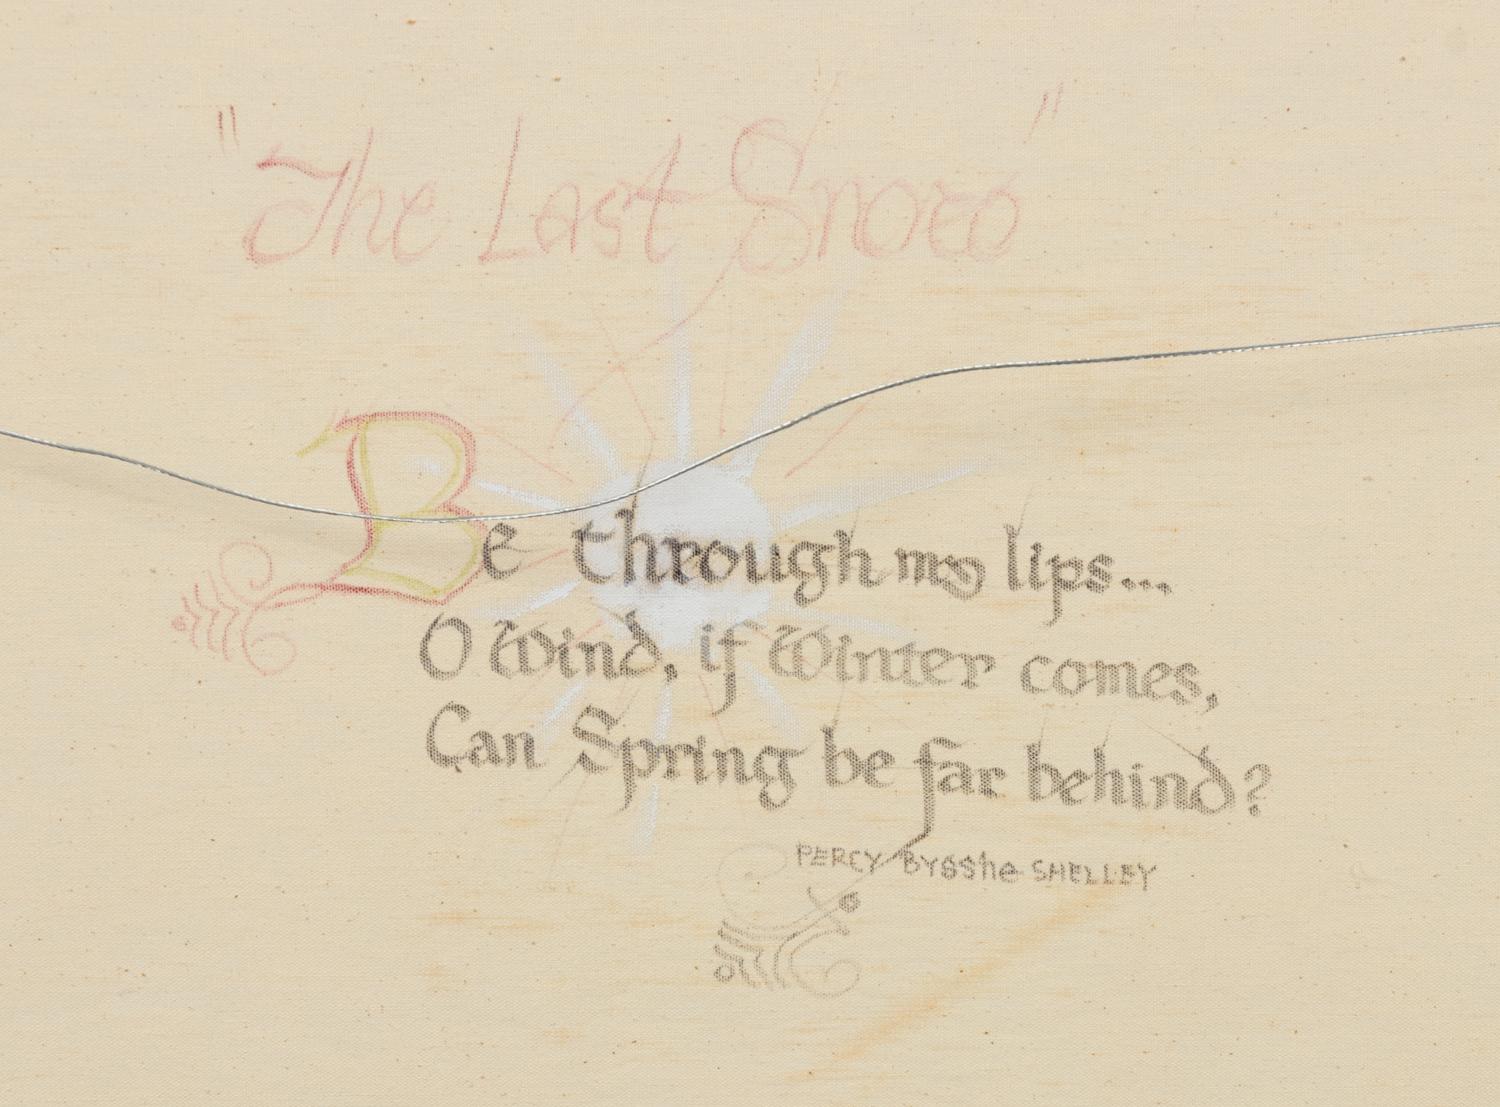 "The Last Snow"
Be through my lips...
O Wind, if Winter comes,
Can Spring be far behind?
PERCY BYSShe SHELLEY